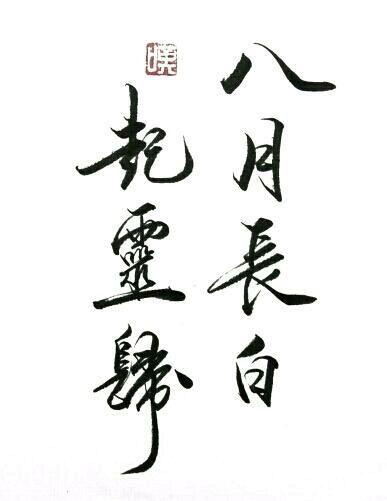 八月長白
起靈歸